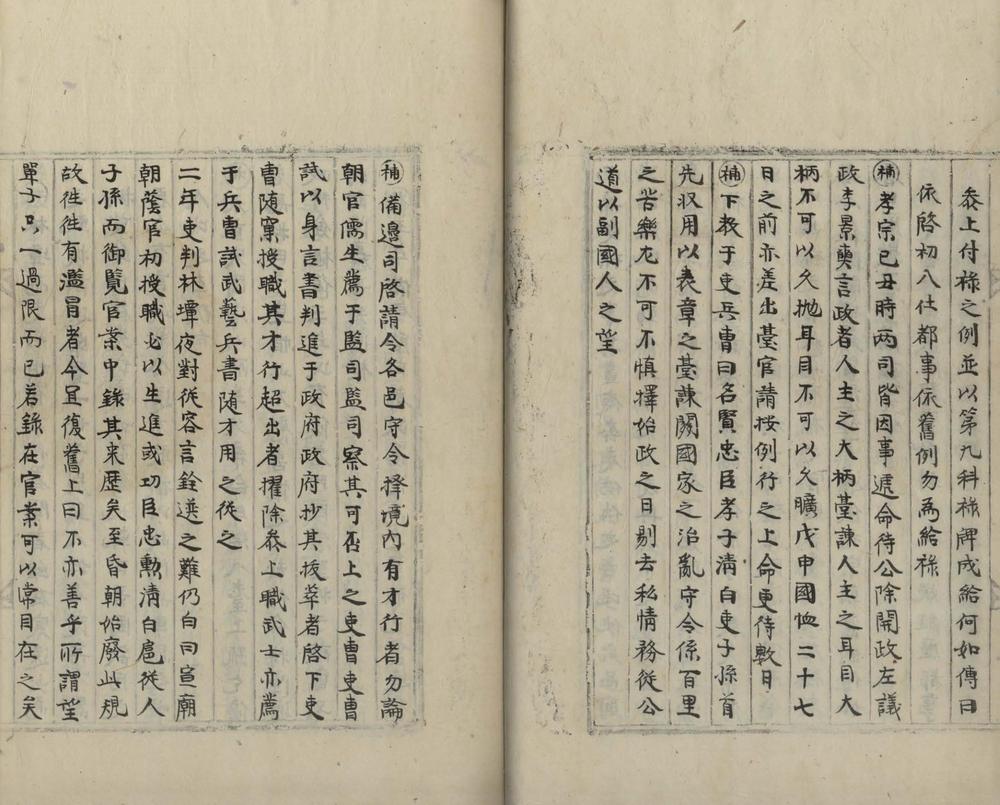 叅上付祿之例並以第九科祿牌成給何如傳曰
依啓初入仕都事依舊例勿爲給祿
補孝宗己丑時兩司皆因事遞命待公除開政左議
政李景奭言政者人主之大柄臺諫人主之耳目大
柄不可以久抛耳目不可以久曠戊申國恤二十七
日之前亦差出臺官請按例行之上命更待數日
補下敎于吏兵曹曰名賢忠臣孝子淸白吏子孫首
先収用以表章之臺諫關國家之治亂守令係百里
之苦樂尤不可不愼擇始政之日剔去私情務從公
道以副國人之望
補備邊司啓請令各邑守令擇境內有才行者勿論
朝官儒生薦于監司監司察其可否上之吏曹吏曹
試以身言書判進于政府政府抄其拔萃者啓下吏
曹隨窠授職其才行超出者擢除叅上職武士亦薦
于兵曹試武藝兵書隨才用之從之
二年吏判林墰夜對從容言銓選之難仍白曰宣廟
朝蔭官初授職必以生進或功臣忠勳淸白扈從人
子孫而御覽官案中錄其来歷矣至昏朝始廢此規
故徃徃有濫冒者今宜復舊上曰不亦善乎所謂望
單子只一過限而已若錄在官案可以常目在之矣